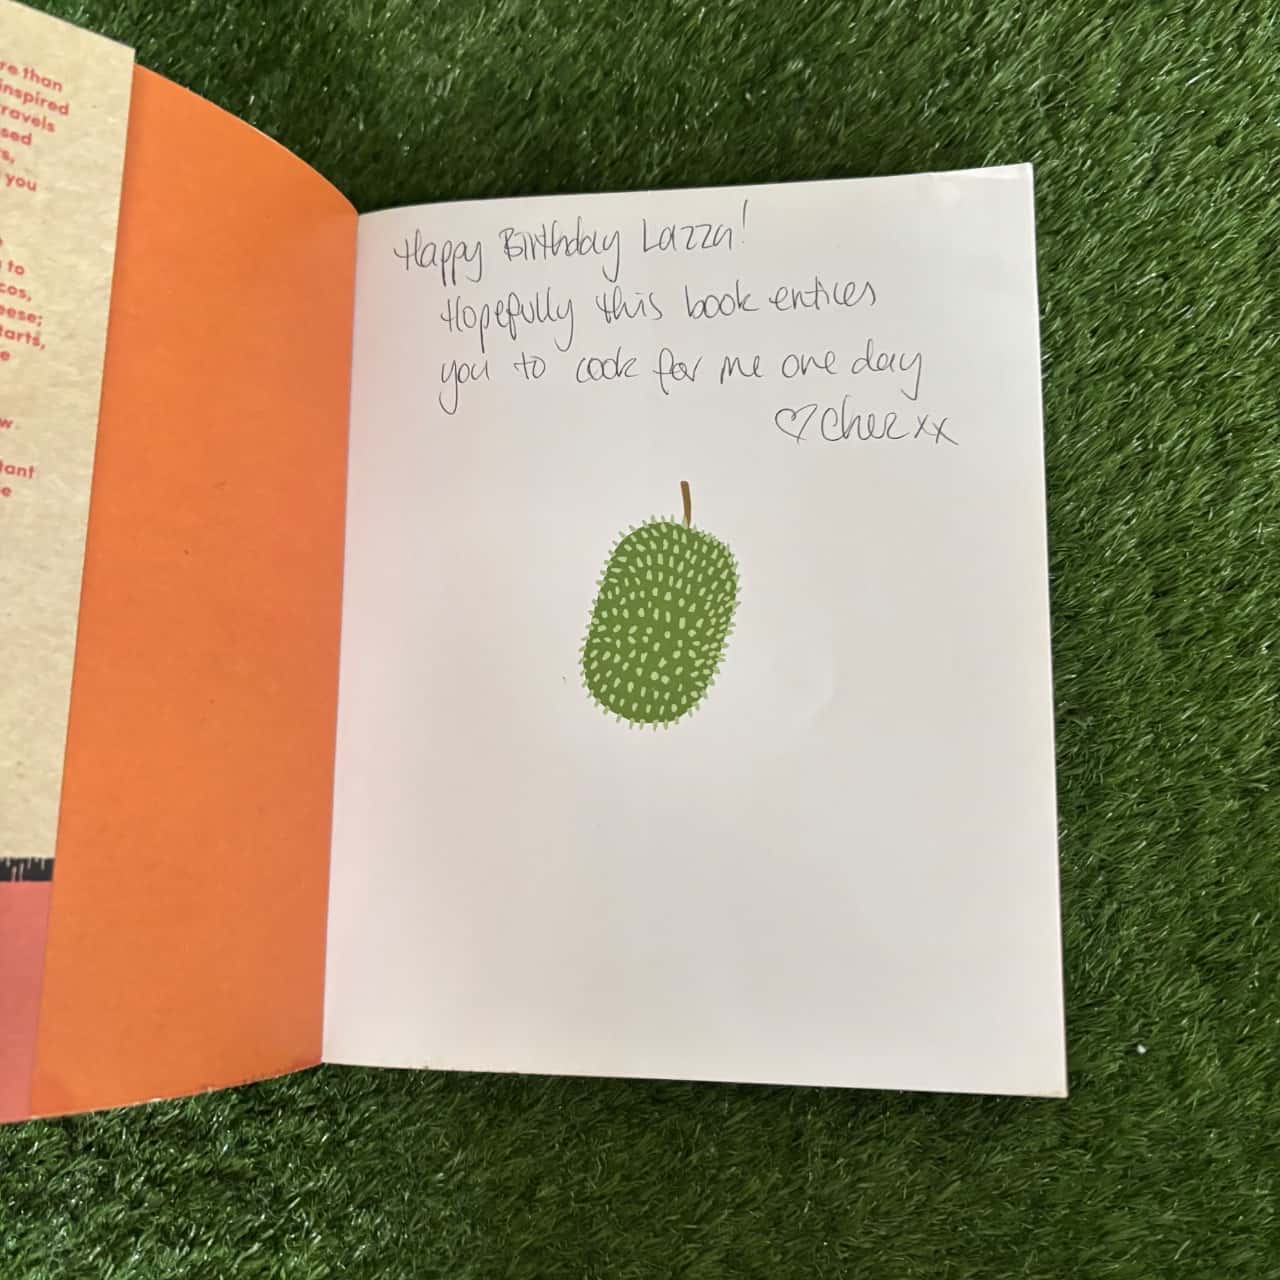 re than
inspired
ravels
sed
s,
you
to
cos,
eese;
tarts,
e
w
tant
e
Happy Birthday Lazza!
Hopefully this book entices
you to cook for me one day
♡ Cher xx